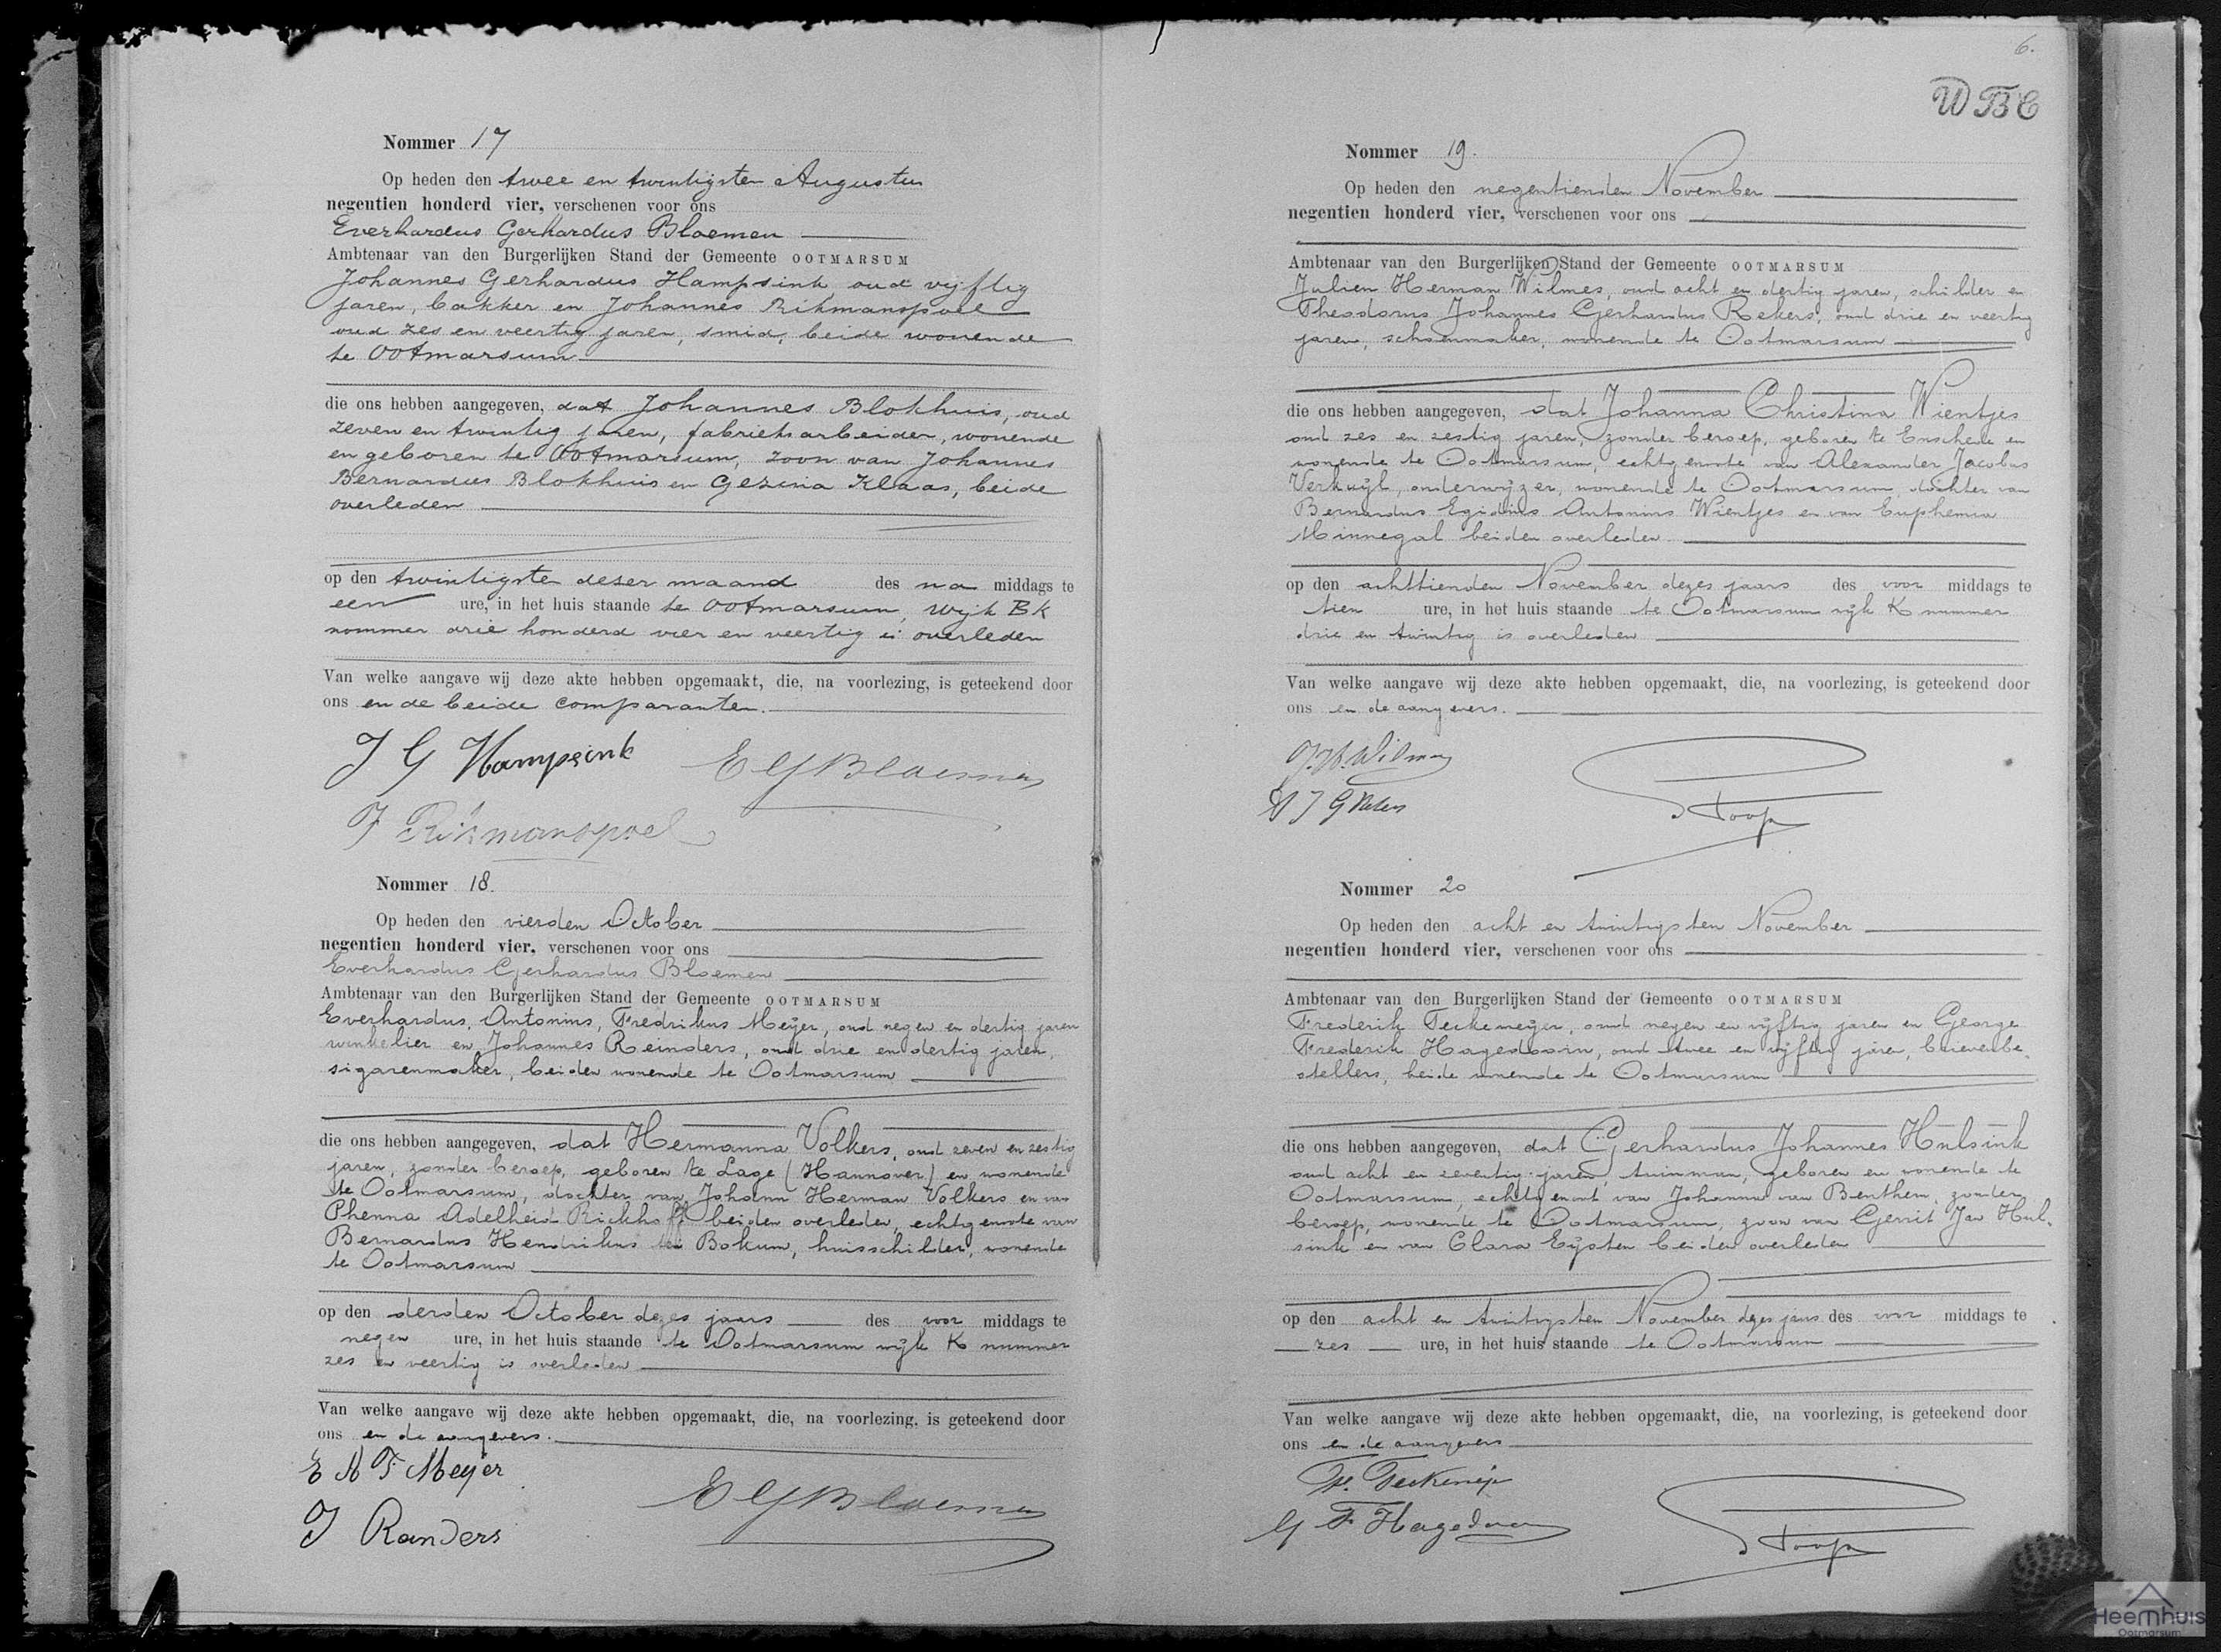 Nommer 17
Op heden den twee en twintigsten Augustus
negentien honderd vier, verschenen voor ons
Everhardus Gerhardus Bloemen
Ambtenaar van den Burgerlijken Stand der Gemeente OOTMARSUM
Johannes Gerhardus Hampsink oud vijftig
jaren, bakker en Johannes Rikmanspoel
oud zes en veertig jaren, smid, beide wonende
te Ootmarsum
die ons hebben aangegeven, dat Johannes Blokhuis, oud
zeven en twintig jaren, fabrieksarbeider, wonende
en geboren te Ootmarsum, zoon van Johannes
Bernardus Blokhuis en Gezina Klaas, beide
overleden
op den twintigsten dezer maand des na middags te
een ure, in het huis staande te Ootmarsum, Wijk BK
nommer drie honderd vier en veertig is overleden
Van welke aangave wij deze akte hebben opgemaakt, die, na voorlezing, is geteekend door
ons en de beide comparanten.
J G Hampsink
E G Bloemen
J Rikmanspoel
Nommer 18.
Op heden den vierden October
negentien honderd vier, verschenen voor ons
Everhardus Gerhardus Bloemen
Ambtenaar van den Burgerlijken Stand der Gemeente OOTMARSUM
Everhardus, Antonius, Fredrikus Meyer, oud negen en dertig jaren
winkelier en Johannes Reinders, oud drie en dertig jaren,
sigarenmaker, beiden wonende te Ootmarsum
die ons hebben aangegeven, dat Hermanna Volkers, oud zeven en zestig
jaren, zonder beroep, geboren te Lage (Hannover) en wonende
te Ootmarsum, dochter van Johann Herman Volkers en van
Phenna Adelheid Rickhoff beiden overleden, echtgenoote van
Bernardus Hendrikus ten Bokum, huisschilder, wonende
te Ootmarsum
op den derden October dezes jaars des voor middags te
negen ure, in het huis staande te Ootmarsum wijk K nummer
zes en veertig is overleden
Van welke aangave wij deze akte hebben opgemaakt, die, na voorlezing, is geteekend door
ons en de aangevers.
E A F Meyer
E G Bloemen
J Randers
6.
WBC
Nommer 19.
Op heden den negentienden November
negentien honderd vier, verschenen voor ons
Ambtenaar van den Burgerlijken Stand der Gemeente OOTMARSUM
Julien Herman Wilmes, oud acht en dertig jaren, schilder en
Theodorus Johannes Gerhardus Rekers, oud drie en veertig
jaren, schoenmaker, wonende te Ootmarsum
die ons hebben aangegeven, dat Johanna Christina Wientjes
oud zes en zestig jaren, zonder beroep, geboren te Enschede en
wonende te Ootmarsum, echtgenoote van Alexander Jacobus
Verkuijl, onderwijzer, wonende te Ootmarsum, dochter van
Bernardus Egidius Antonius Wientjes en van Euphemia
Minnegal beiden overleden
op den achttienden November dezes jaars des voor middags te
tien ure, in het huis staande te Ootmarsum wijk K nummer
drie en twintig is overleden
Van welke aangave wij deze akte hebben opgemaakt, die, na voorlezing, is geteekend door
ons en de aangevers.
J. H. Wilmes
Nommer 20
Op heden den acht en twintigsten November
negentien honderd vier, verschenen voor ons
Ambtenaar van den Burgerlijken Stand der Gemeente OOTMARSUM
Frederik Teckemeijer, oud negen en vijftig jaren en George
Frederik Hagedoorn, oud twee en vijftig jaren, brievenbe-
stellers, beide wonende te Ootmarsum
die ons hebben aangegeven, dat Gerhardus Johannes Hulsink
oud acht en zeventig jaren, tuinman, geboren en wonende te
Ootmarsum, echtgenoot van Johanna van Benthem, zonder
beroep, wonende te Ootmarsum, zoon van Gerrit Jan Hul-
sink en van Clara Eijsten beiden overleden
op den acht en twintigsten November dezes jaars des voor middags te
zes ure, in het huis staande te Ootmarsum
Van welke aangave wij deze akte hebben opgemaakt, die, na voorlezing, is geteekend door
ons en de aangevers
G F Hagedoorn
Heemhuis
Ootmarsum